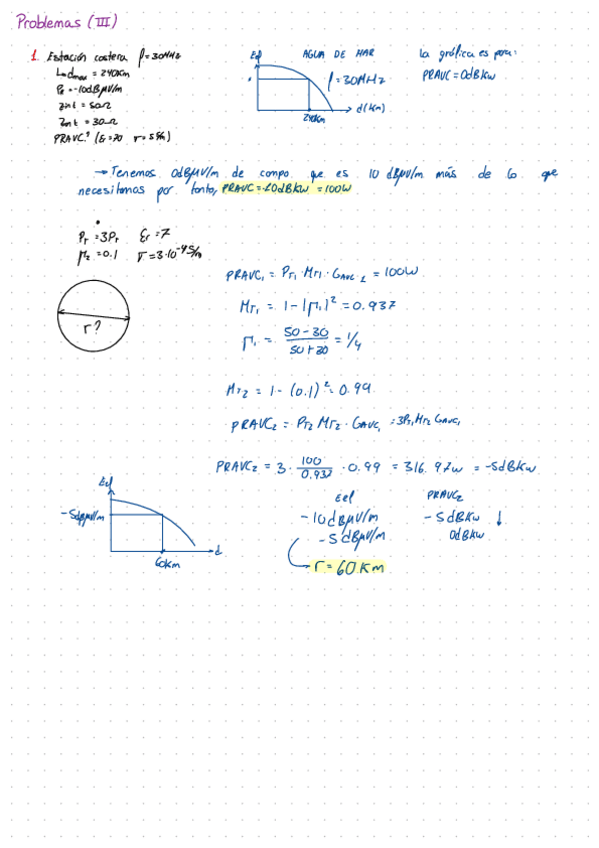 Problemas (III)
1. Estación costera f=30MHz
dmax = 240Km
= -10dBµV/m
Zint = 50Ω
Zant = 30Ω
PRAVC? (εr=70 σ=5S/m)
Eef
AGUA DE MAR
f=30MHz
240Km
d(Km)
La gráfica es para:
PRAVC=0dBKw
→ Tenemos 0dBµV/m de campo que es 10 dBµV/m más de lo que
necesitamos por tanto, PRAVC=-10dBKw =100W
PT=3PT εr=7
ρ2=0.1 σ=3·10⁻⁴S/m
r?
PRAVC1 = PT1·MT1·GAVC2 = 100W
MT1 = 1-|ρ1|² = 0.937
ρ1 = (50-30)/(50+30) = 1/4
MT2 = 1-(0.1)² = 0.99
PRAVC2 = PT2 MT2·GAVC1 = 3PT1MT2 GAVC1
PRAVC2 = 3·100/0.937·0.99 = 316.97w = -5dBKw
Eef
-5dBµV/m
60Km
d
Eef PRAVC2
-10dBµV/m -5dBKw ↓
-5dBµV/m 0dBKw
r=60Km